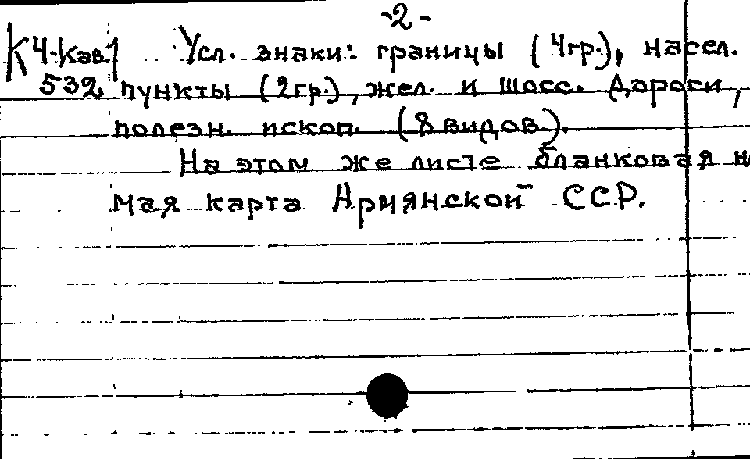 -2-
К 4-Кав. Усл. знаки: границы (4гр.), насел.
532. пункты (2гр.), жел. и шосс. дороги,
полезн. ископ. (8 видов).
На этом же листе бланковая не
мая карта Армянской ССР.